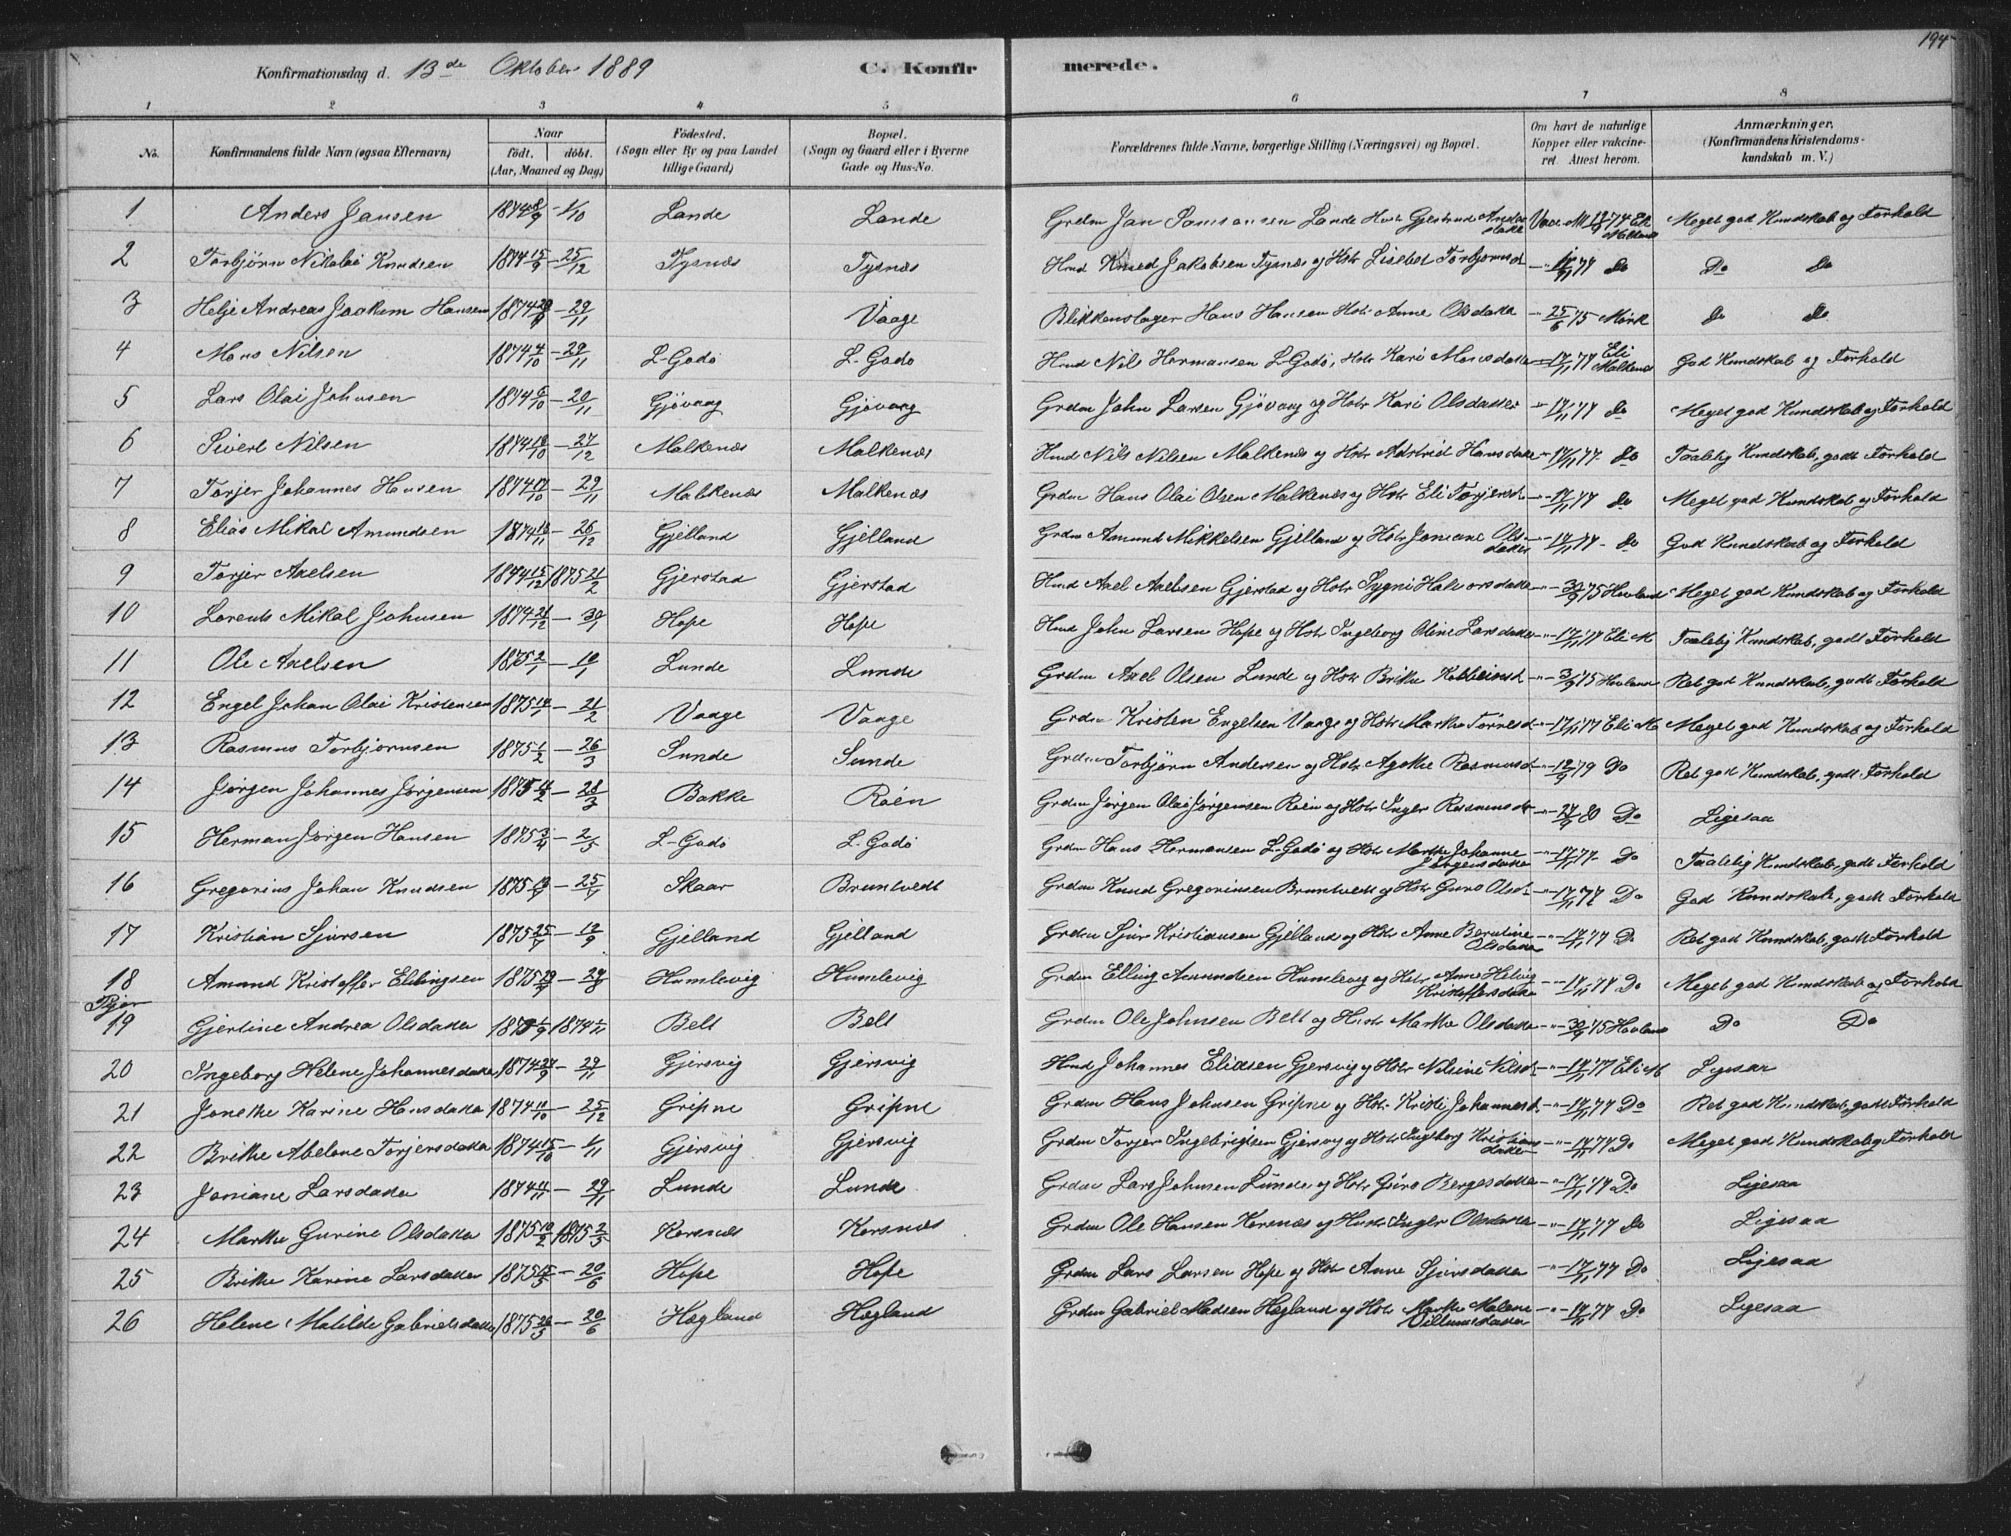 194
Konfirmationsdag d. 13de Oktober 1889
C. Konfirmerede.
1 2 3 4 5 6 7 8
No. Konfirmandens fulde Navn (ogsaa Efternavn) Naar født. døbt. (Aar, Maaned og Dag) Fødested. (Sogn eller By og paa Landet tillige Gaard) Bopæl. (Sogn og Gaard eller i Byerne Gade og Hus-No. Forældrenes fulde Navne, borgerlige Stilling (Næringsvei) og Bopæl. Om havt de naturlige Kopper eller vakcineret. Attest herom. Anmærkninger. (Konfirmandens Kristendomskundskab m. V.)
1 Anders Jansen 1874 8/9 - 1/10 Lande Lande Grdm Jan Samsonsen Lande Hstr Gjertrud Andersdatter Vacc. Eli Malkenes Meget god Kundskab og Forhold
2 Torbjørn Nikolai Knudsen 1874 15/9 - 25/12 Tysnæs Tysnæs Hmd Knud Jakobsen Tysnæs og Hstr Lisebet Torbjørnsd - 77 do Do do
3 Helje Andreas Joakim Hansen 1874 - 29/11 Vaage Blikkenslager Hans Hansen Hstr Anne Olsdatter - 25/6 75 Mörk do do
4 Mons Nilsen 1874 4/10 - 29/11 L-Godø L-Godø Hmd Nil Hermansen L-Godø, Hstr Kari Monsdatter - 17/11 77 Eli Malkenes God Kundskab og Forhold
5 Lars Olai Johnsen 1874 6/10 - 20/11 Gjøvaag Gjøvaag Grdm John Larsen Gjøvaag og Hstr Kari Olsdatter - 17/11 77 do Meget god Kundskab og Forhold
6 Sivert Nilsen 1874 - 27/12 Malkenæs Malkenæs Hmd Nils Nilsen Malkenæs og Hstr Astrid Hansdatter - 17/11 77 - do Taalelig Kundskab, godt Forhold
7 Torjer Johannes Hansen 1874 - 29/11 Malkenæs Malkenæs Grdm Hans Olai Olsen Malkenæs og Hstr Eli Torjersd - 17/11 77 do Meget god Kundskab og Forhold
8 Elias Mikal Amundsen 1874 - 26/12 Gjelland Gjelland Grdm Amund Mikkelsen Gjelland og Hstr Joniane Olsdatter - 17/11 77 - do God Kundskab og Forhold
9 Torjer Axelsen 1874 15/12 1875 21/2 Gjerstad Gjerstad Hmd Axel Axelsen Gjerstad og Hstr Sygni Halvorsdatter - 30/9 75 Hovland Meget god Kundskab og Forhold
10 Lorents Mikal Johnsen 1874 21/12 - 30/1 Hope Hope Hmd John Larsen Hope og Hstr Ingeborg Oline Larsdatter - 17/11 77 Eli M Taalelig Kundskab, godt Forhold
11 Ole Axelsen 1875 2/1 - 10/1 Lunde Lunde Grdm Axel Olsen Lunde og Hstr Brithe - 75 Hovland Ret god Kundskab, godt Forhold
12 Engel Johan Olai Kristensen 1875 - 21/2 Vaage Vaage Grdm Kristen Engelsen Vaage og Hstr Marthe Tørresd - 17/11 77 Eli M Meget god Kundskab og Forhold
13 Rasmus Torbjørnsen 1875 1/2 - 26/3 Sunde Sunde Grdm Torbjørn Andersen og Hstr Agathe Rasmusd - 79 Do Ret god Kundskab, godt Forhold
14 Jørgen Johannes Jørgensen 1875 - 28/3 Bakke Røen Grdm Jørgen Olai Jørgensen Røen og Hstr Inger Rasmusdr - 80 Do Ligesaa
15 Herman Jørgen Hansen 1875 3/4 - 2/5 L-Godø L-Godø Grdm Hans Hermansen L-Godø og Hstr Marthe Johanne Jørgensdatter - 17/11 77 - Do Taalelig Kundskab, godt Forhold
16 Gregorius Johan Knudsen 1875 - 25/4 Skaar Bruntvedt Grdm Knud Gregoriussen Bruntvedt og Hstr Guro Olsd - 17/11 77 Do God Kundskab, godt Forhold
17 Kristian Sjursen 1875 25/7 - 12/9 Gjelland Gjelland Grdm Sjur Kristiansen Gjelland og Hstr Anne Berntine Olsdatter - 17/11 77 Do Ret god Kundskab, godt Forhold
18 Amund Kristoffer Ellingsen 1875 - 29/8 Humlevig Humlevig Grdm Elling Amundsen Humlevig og Hstr Anne Helvig Kristoffersdatter - 17/11 77 Do Meget god Kundskab og Forhold
Piger
19 Gjertine Andrea Olsdatter 1875 1874 Belt Belt Grdm Ole Johnsen Belt og Hstr Marthe Olsdatter - 30/9 75 Hovland Do Do
20 Ingeborg Helene Johannesdatter 1874 27/9 - 29/11 Gjersvig Gjersvig Hmd Johannes Eliasen Gjersvig og Hstr Nilsine Nilsd - 17/11 77 Eli M Ligesaa
21 Jonethe Karine Hansdatter 1874 - 25/12 Gripne Gripne Grdm Hans Johnsen Gripne og Hstr Kristi Johannesd - 17/11 77 Do Ret god Kundskab, godt Forhold
22 Brithe Abelone Torjersdatter 1874 15/10 - 1/11 Gjersvig Gjersvig Grdm Torjer Ingebrigtsen Gjersvig og Hstr Ingeborg Kristiansdatter - 17/11 77 Do Meget god Kundskab og Forhold
23 Joniane Larsdatter 1874 - 29/11 Lunde Lunde Grdm Lars Johnsen Lunde og Hstr Guro Bergesdatter - 17/11 77 Do Ligesaa
24 Marthe Gurine Olsdatter 1875 10/2 1875 2/5 Korsnæs Korsnæs Grdm Ole Hansen Korsnæs og Hustr Inger Olsdatter - 17/11 77 Do Ligesaa
25 Brithe Karine Larsdatter 1875 - 20/6 Hope Hope Grdm Lars Larsen Hope og Hstr Anne Sjursdatter - 17/11 77 Do Ligesaa
26 Helene Matilde Gabrielsdatter 1875 - 20/6 Hægland Hægland Grdm Gabriel Madsen Hægland og Hstr Marthe Malene Villumsdatter - 17/11 77 Do Ligesaa